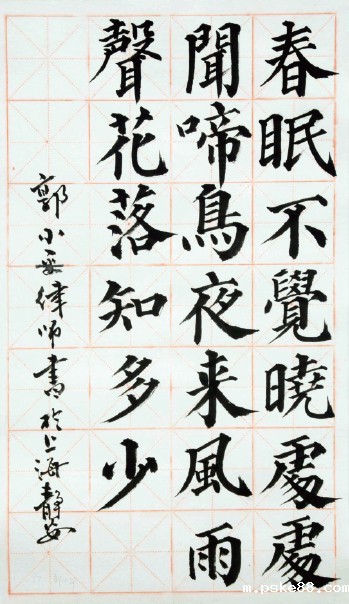 春眠不覺曉處處
聞啼鳥夜来風雨
聲花落知多少
郭小律师書於上海靜安
m.pske88.com